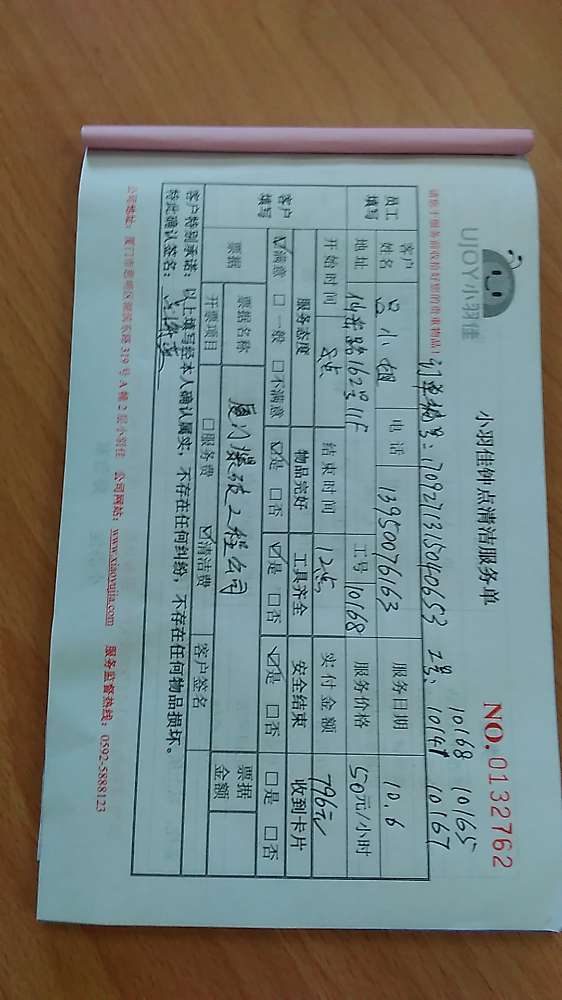 UJOY小羽佳
小羽佳钟点清洁服务单
NO.0132762
请您于服务前收拾好您的贵重物品!
订单编号:709271315040653 工号: 10168 10165
10141 10167
员工填写
客户姓名 吕小姐 电话 13950076163 服务日期 10.6
地址 仙岳路1623号11F 工号 10168 服务价格 50元/小时
开始时间 8点 结束时间 12点 实付金额 796元
客户填写
服务态度 物品完好 工具齐全 安全结束 收到卡片
☑满意 □一般 □不满意 ☑是 □否 ☑是 □否 ☑是 □否 □是 □否
票据 票据名称 厦门爆破工程公司 票据金额
开票项目 □服务费 ☑清洁费 客户签名
客户特别承诺: 以上填写经本人确认属实, 不存在任何纠纷, 不存在任何物品损坏。
特此确认签名:
公司地址: 厦门市思明区湖滨东路319号A幢2层小羽佳 公司网站: www.xiaoyujia.com 服务监督热线: 0592-5888123